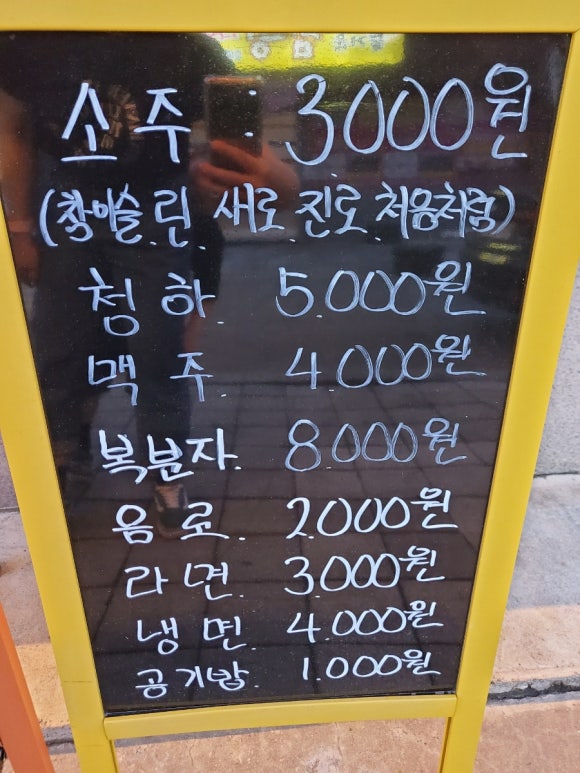 소주 : 3.000원
(참이슬. 린. 새로. 진로. 처음처럼)
청하. 5.000원
맥주. 4.000원
복분자. 8.000원
음료. 2.000원
라면. 3.000원
냉면. 4.000원
공기밥. 1.000원